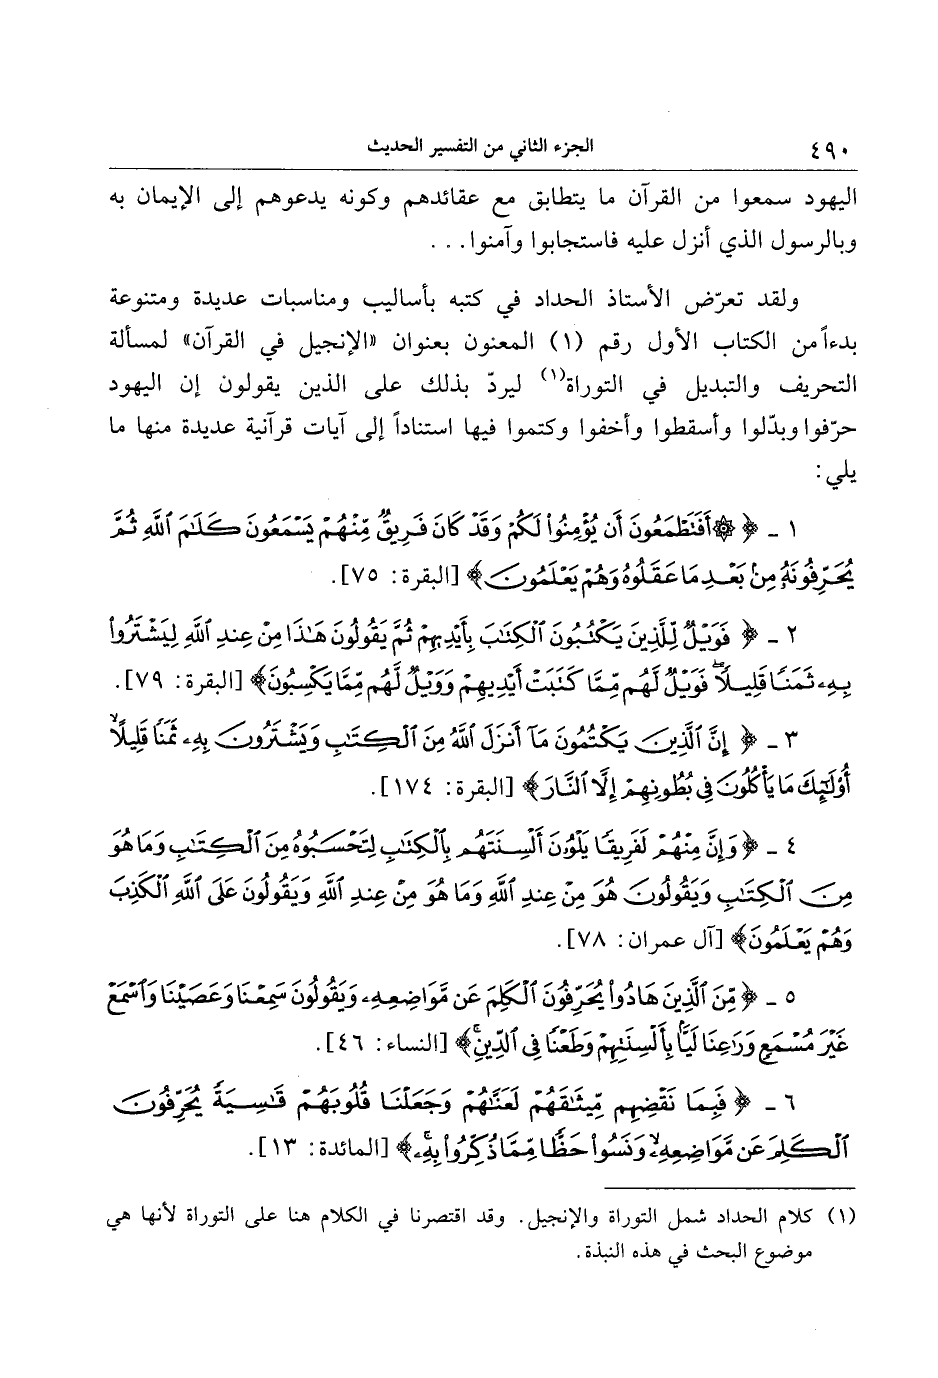 ٤٩٠ الجزء الثاني من التفسير الحديث
اليهود سمعوا من القرآن ما يتطابق مع عقائدهم وكونه يدعوهم إلى الإيمان به
وبالرسول الذي أنزل عليه فاستجابوا وآمنوا. . .
ولقد تعرّض الأستاذ الحداد في كتبه بأساليب ومناسبات عديدة ومتنوعة
بدءاً من الكتاب الأول رقم (١) المعنون بعنوان «الإنجيل في القرآن» لمسألة
التحريف والتبديل في التوراة(١) ليردّ بذلك على الذين يقولون إن اليهود
حرّفوا وبدّلوا وأسقطوا وأخفوا وكتموا فيها استناداً إلى آيات قرآنية عديدة منها ما
يلي:
١ ـ ﴿ ۞ أَفَتَطْمَعُونَ أَن يُؤْمِنُوا۟ لَكُمْ وَقَدْ كَانَ فَرِيقٌ مِّنْهُمْ يَسْمَعُونَ كَلَـٰمَ ٱللَّهِ ثُمَّ
يُحَرِّفُونَهُۥ مِنۢ بَعْدِ مَا عَقَلُوهُ وَهُمْ يَعْلَمُونَ﴾ [البقرة: ٧٥].
٢ ـ ﴿ فَوَيْلٌ لِّلَّذِينَ يَكْتُبُونَ ٱلْكِتَـٰبَ بِأَيْدِيهِمْ ثُمَّ يَقُولُونَ هَـٰذَا مِنْ عِندِ ٱللَّهِ لِيَشْتَرُوا۟
بِهِۦ ثَمَنًا قَلِيلًا ۖ فَوَيْلٌ لَّهُم مِّمَّا كَتَبَتْ أَيْدِيهِمْ وَوَيْلٌ لَّهُم مِّمَّا يَكْسِبُونَ﴾ [البقرة: ٧٩].
٣ ـ ﴿ إِنَّ ٱلَّذِينَ يَكْتُمُونَ مَآ أَنزَلَ ٱللَّهُ مِنَ ٱلْكِتَـٰبِ وَيَشْتَرُونَ بِهِۦ ثَمَنًا قَلِيلًا ۙ
أُو۟لَـٰٓئِكَ مَا يَأْكُلُونَ فِى بُطُونِهِمْ إِلَّا ٱلنَّارَ﴾ [البقرة: ١٧٤].
٤ ـ ﴿ وَإِنَّ مِنْهُمْ لَفَرِيقًا يَلْوُۥنَ أَلْسِنَتَهُم بِٱلْكِتَـٰبِ لِتَحْسَبُوهُ مِنَ ٱلْكِتَـٰبِ وَمَا هُوَ
مِنَ ٱلْكِتَـٰبِ وَيَقُولُونَ هُوَ مِنْ عِندِ ٱللَّهِ وَمَا هُوَ مِنْ عِندِ ٱللَّهِ وَيَقُولُونَ عَلَى ٱللَّهِ ٱلْكَذِبَ
وَهُمْ يَعْلَمُونَ﴾ [آل عمران: ٧٨].
٥ ـ ﴿ مِّنَ ٱلَّذِينَ هَادُوا۟ يُحَرِّفُونَ ٱلْكَلِمَ عَن مَّوَاضِعِهِۦ وَيَقُولُونَ سَمِعْنَا وَعَصَيْنَا وَٱسْمَعْ
غَيْرَ مُسْمَعٍ وَرَٰعِنَا لَيًّۢا بِأَلْسِنَتِهِمْ وَطَعْنًا فِى ٱلدِّينِ ۚ﴾ [النساء: ٤٦].
٦ ـ ﴿ فَبِمَا نَقْضِهِم مِّيثَـٰقَهُمْ لَعَنَّـٰهُمْ وَجَعَلْنَا قُلُوبَهُمْ قَـٰسِيَةً ۖ يُحَرِّفُونَ
ٱلْكَلِمَ عَن مَّوَاضِعِهِۦ ۙ وَنَسُوا۟ حَظًّا مِّمَّا ذُكِّرُوا۟ بِهِۦ ۚ﴾ [المائدة: ١٣].
(١) كلام الحداد شمل التوراة والإنجيل. وقد اقتصرنا في الكلام هنا على التوراة لأنها هي
موضوع البحث في هذه النبذة.